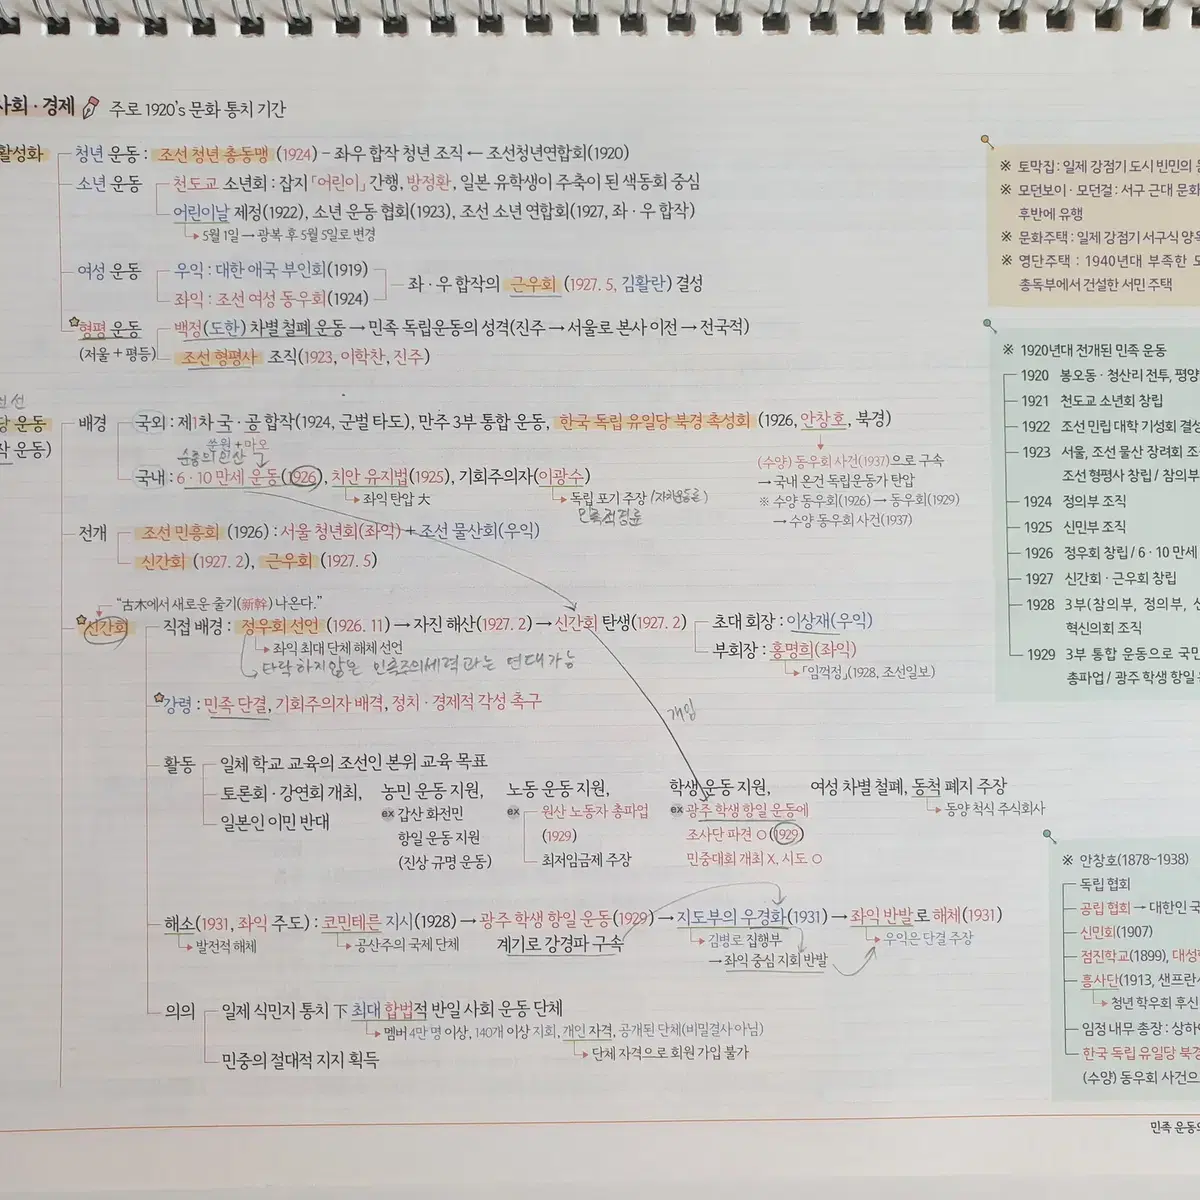 사회·경제 주로 1920's 문화 통치 기간
활성화
청년 운동 : 조선 청년 총동맹 (1924) – 좌우 합작 청년 조직 ← 조선청년연합회(1920)
소년 운동 천도교 소년회 : 잡지 「어린이」 간행, 방정환, 일본 유학생이 주축이 된 색동회 중심
어린이날 제정(1922), 소년 운동 협회(1923), 조선 소년 연합회(1927, 좌·우 합작)
5월 1일 → 광복 후 5월 5일로 변경
여성 운동 우익 : 대한 애국 부인회(1919)
좌익 : 조선 여성 동우회(1924)
좌·우 합작의 근우회 (1927. 5, 김활란) 결성
형평 운동 백정(도한) 차별 철폐 운동 → 민족 독립운동의 성격(진주 → 서울로 본사 이전 → 전국적)
(저울 + 평등) 조선 형평사 조직(1923, 이학찬, 진주)
당 운동
작 운동)
배경 국외 : 제1차 국·공 합작(1924, 군벌 타도), 만주 3부 통합 운동, 한국 독립 유일당 북경 촉성회 (1926, 안창호, 북경)
(수양) 동우회 사건(1937)으로 구속
→ 국내 온건 독립운동가 탄압
※ 수양 동우회(1926) → 동우회(1929)
→ 수양 동우회 사건(1937)
순종의 인산
국내 : 6·10 만세 운동(1926), 치안 유지법(1925), 기회주의자(이광수)
좌익 탄압 大
독립 포기 주장 / 자치운동론)
민족적경륜
전개 조선 민흥회 (1926) : 서울 청년회(좌익) + 조선 물산회(우익)
신간회 (1927. 2), 근우회 (1927. 5)
"古木에서 새로운 줄기(新幹) 나온다."
신간회
직접 배경 : 정우회 선언 (1926. 11) → 자진 해산(1927. 2) → 신간회 탄생(1927. 2)
초대 회장 : 이상재(우익)
부회장 : 홍명희(좌익)
「임꺽정」(1928, 조선일보)
좌익 최대 단체 해체 선언
타락하지않은 민족주의세력과는 연대가능
강령 : 민족 단결, 기회주의자 배격, 정치·경제적 각성 촉구
개입
활동 일체 학교 교육의 조선인 본위 교육 목표
토론회·강연회 개최,
일본인 이민 반대
농민 운동 지원,
ex 갑산 화전민
항일 운동 지원
(진상 규명 운동)
노동 운동 지원,
ex 원산 노동자 총파업
(1929)
최저임금제 주장
학생 운동 지원,
ex 광주 학생 항일 운동에
조사단 파견 O (1929)
민중대회 개최 X, 시도 O
여성 차별 철폐, 동척 폐지 주장
동양 척식 주식회사
해소(1931, 좌익 주도) : 코민테른 지시(1928) → 광주 학생 항일 운동(1929) → 지도부의 우경화(1931) → 좌익 반발로 해체(1931)
발전적 해체
공산주의 국제 단체
계기로 강경파 구속
김병로 집행부
→ 좌익 중심 지회 반발
우익은 단결 주장
의의 일제 식민지 통치 下 최대 합법적 반일 사회 운동 단체
멤버 4만 명 이상, 140개 이상 지회, 개인 자격, 공개된 단체(비밀결사 아님)
단체 자격으로 회원 가입 불가
민중의 절대적 지지 획득
※ 토막집 : 일제 강점기 도시 빈민의
※ 모던보이·모던걸 : 서구 근대 문화
후반에 유행
※ 문화주택 : 일제 강점기 서구식 양옥
※ 영단주택 : 1940년대 부족한
총독부에서 건설한 서민 주택
※ 1920년대 전개된 민족 운동
1920 봉오동·청산리 전투, 평양
1921 천도교 소년회 창립
1922 조선 민립 대학 기성회 결성
1923 서울, 조선 물산 장려회 조직
조선 형평사 창립 / 참의부
1924 정의부 조직
1925 신민부 조직
1926 정우회 창립 / 6·10 만세
1927 신간회·근우회 창립
1928 3부(참의부, 정의부,
혁신의회 조직
1929 3부 통합 운동으로
총파업 / 광주 학생 항일
※ 안창호(1878~1938)
독립 협회
공립 협회 → 대한인
신민회(1907)
점진학교(1899),
흥사단(1913,
청년 학우회 후신
임정 내무 총장 :
한국 독립 유일당 북경
(수양) 동우회 사건으
민족 운동